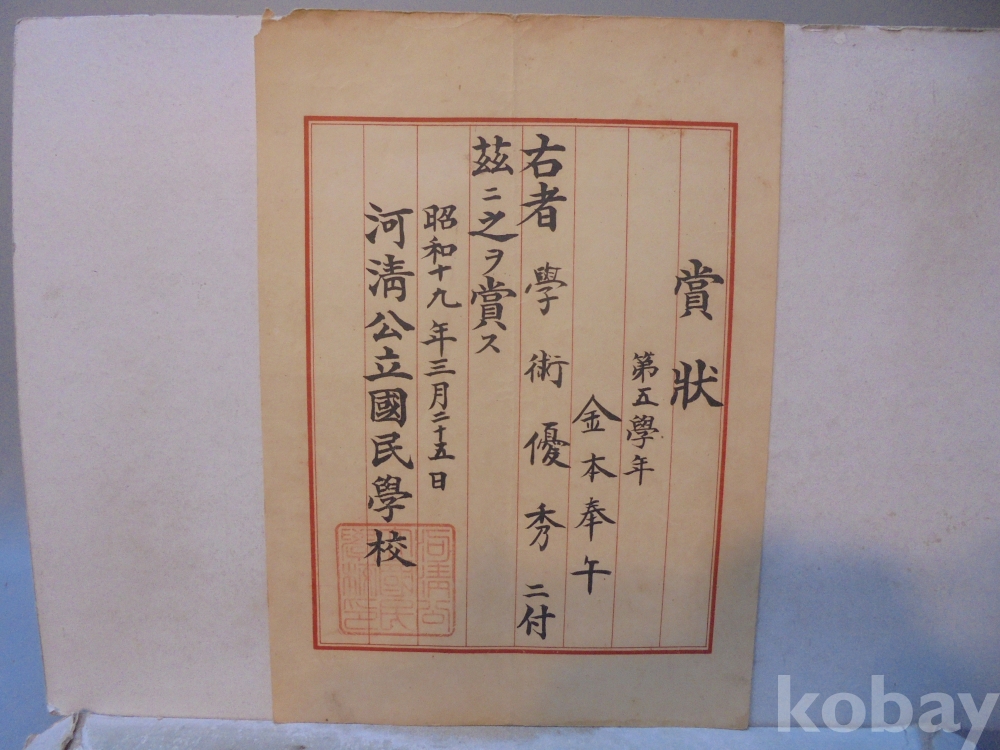 賞狀
第五學年
金本奉午
右者學術優秀ニ付
茲ニ之ヲ賞ス
昭和十九年三月二十五日
河淸公立國民學校
kobay